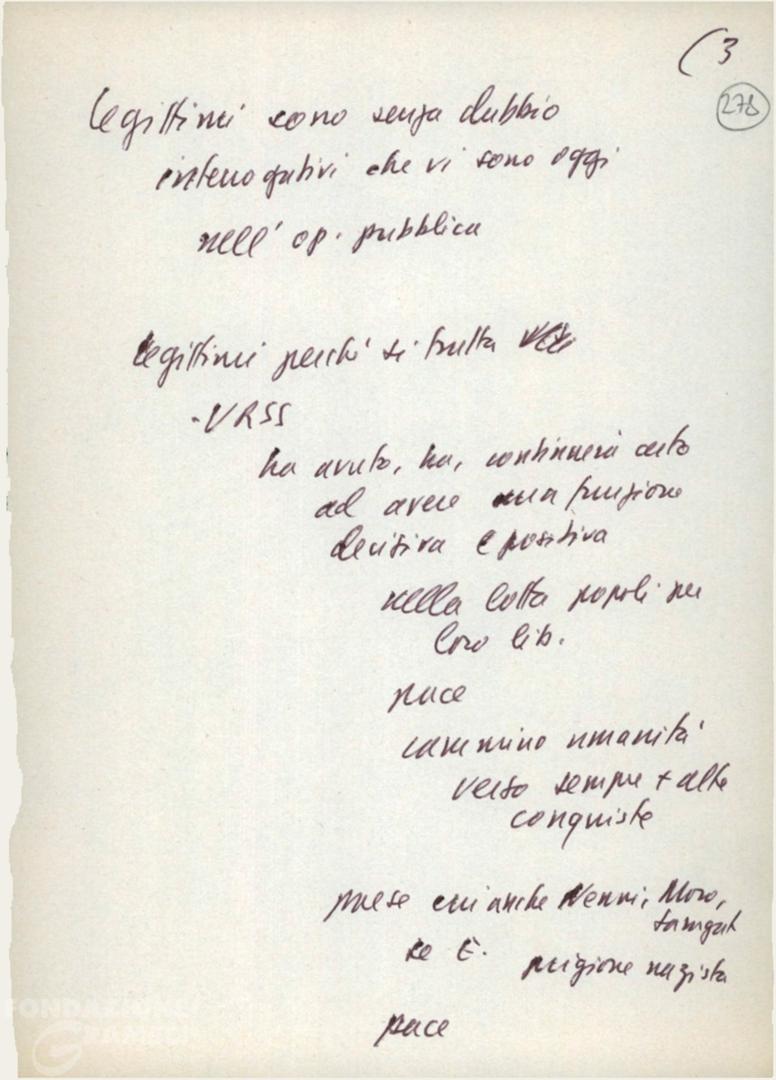 (3
278
legittimi sono senza dubbio
interrogativi che vi sono oggi
nell' op. pubblica
legittimi perchè si tratta
-URSS
ha avuto, ha, continuerà certo
ad avere una funzione
decisiva e positiva
nella lotta popoli per
loro lib.
pace
cammino umanità
verso sempre + alte
conquiste
paese cui anche Nenni, Moro,
se E. prigione nazista
pace
FONDAZIONE
GRAMSCI